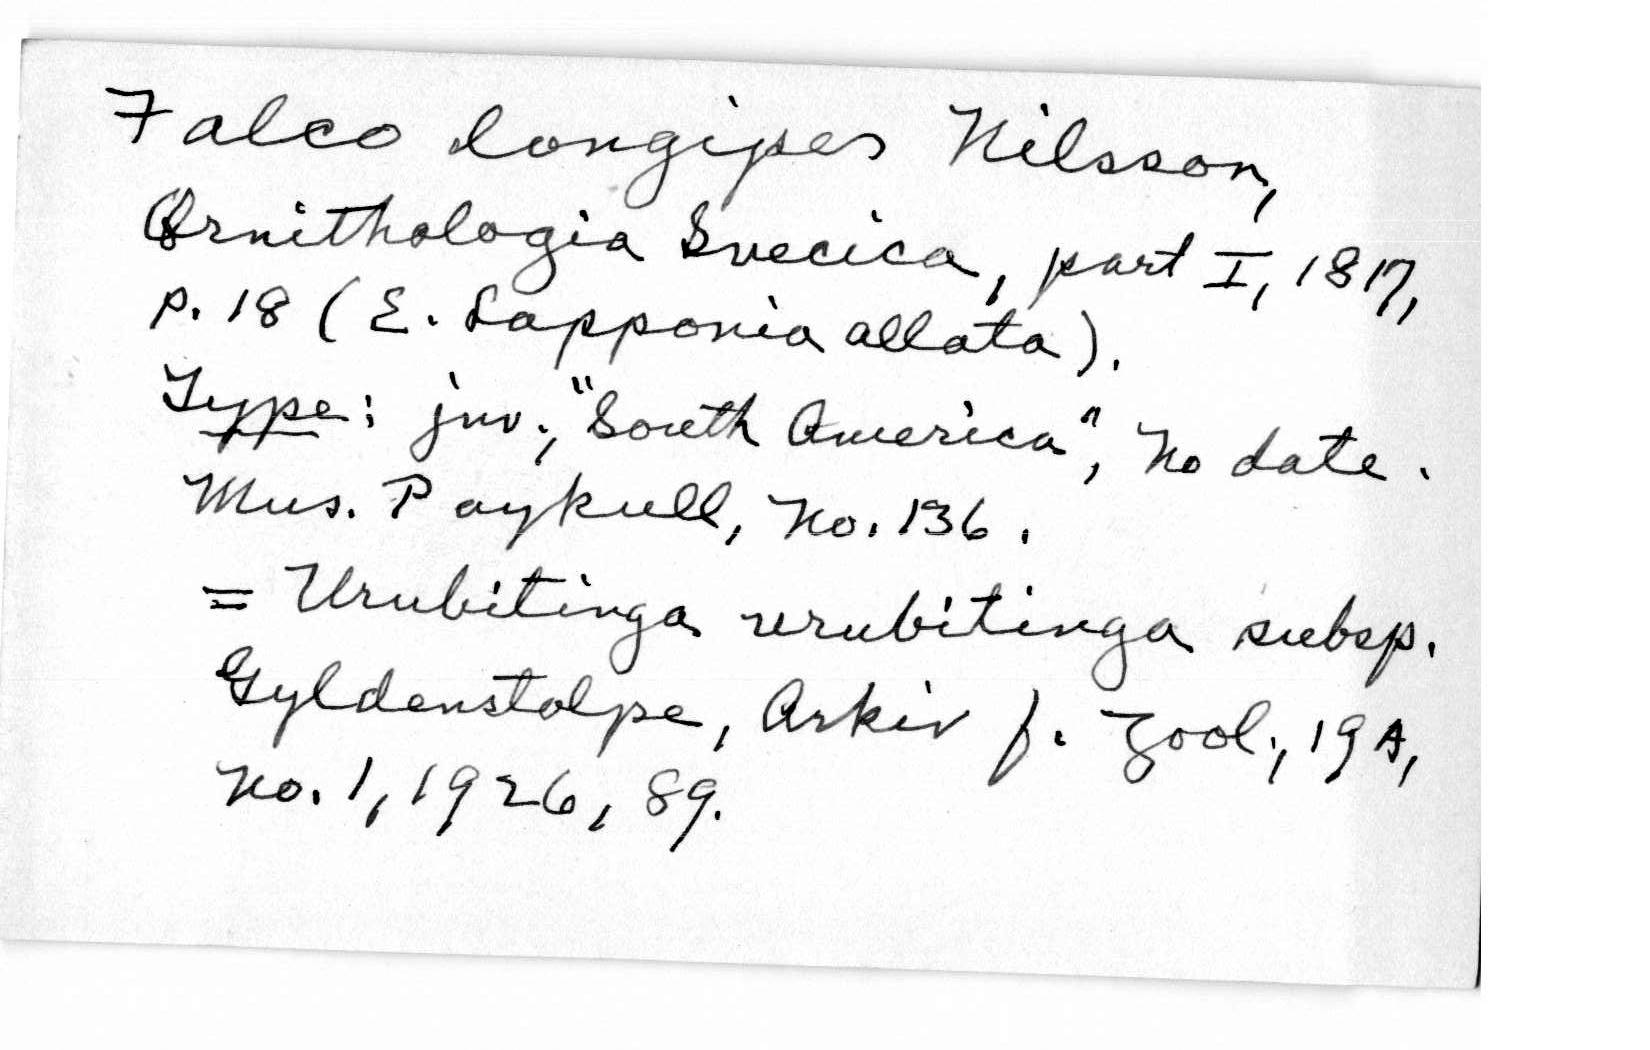 Falco longipes Nilsson,
Ornithologia Svecica, part I, 1817,
p. 18 (E. Lapponia allata).
Type: juv., "South America", No date.
Mus. Paykull, No. 136.
= Urubitinga urubitinga subsp.
Gyldenstolpe, Arkiv f. Zool., 19A,
No. 1, 1926, 89.